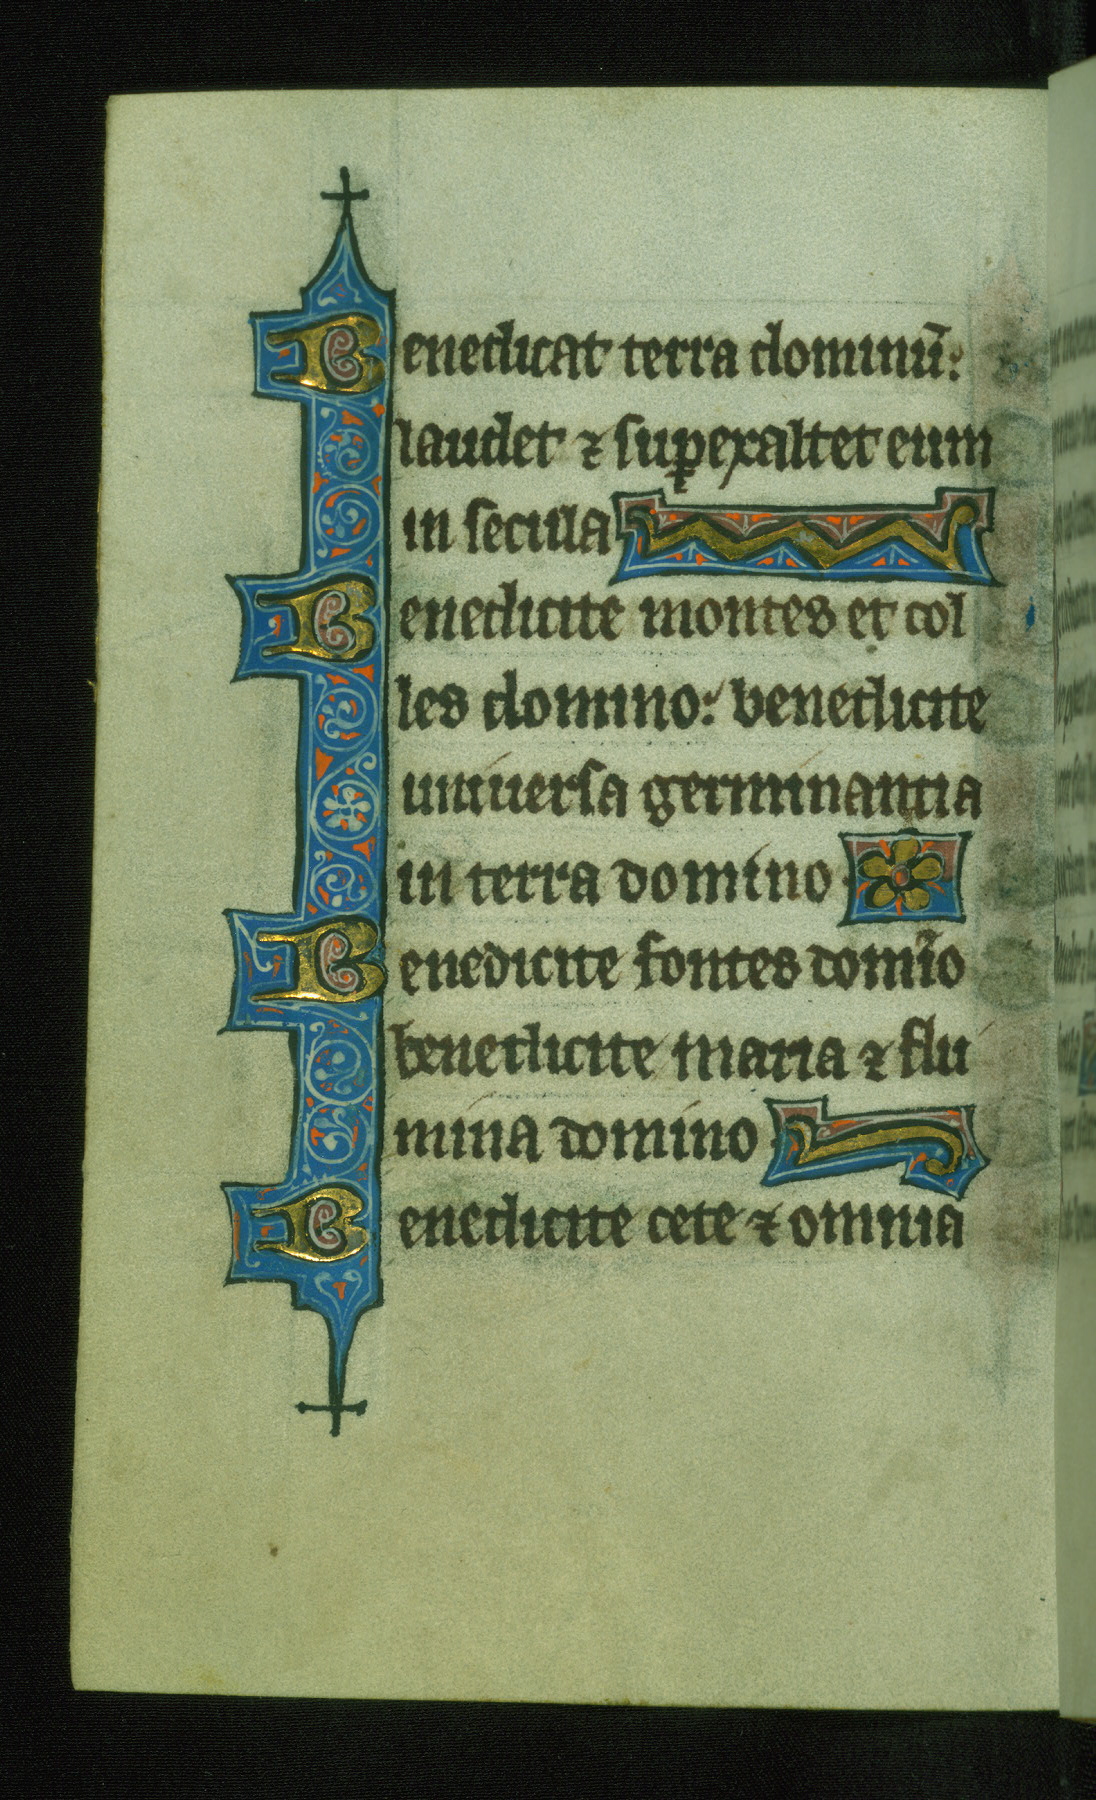 Benedicat terra dominū:
laudet ⁊ suꝑexaltet eum
in secula
Benedicite montes et col
les domino: benedicite
uniuersa germinantia
in terra domino
Benedicite fontes domīo
benedicite maria ⁊ flu
mina domino
Benedicite cete ⁊ omnia